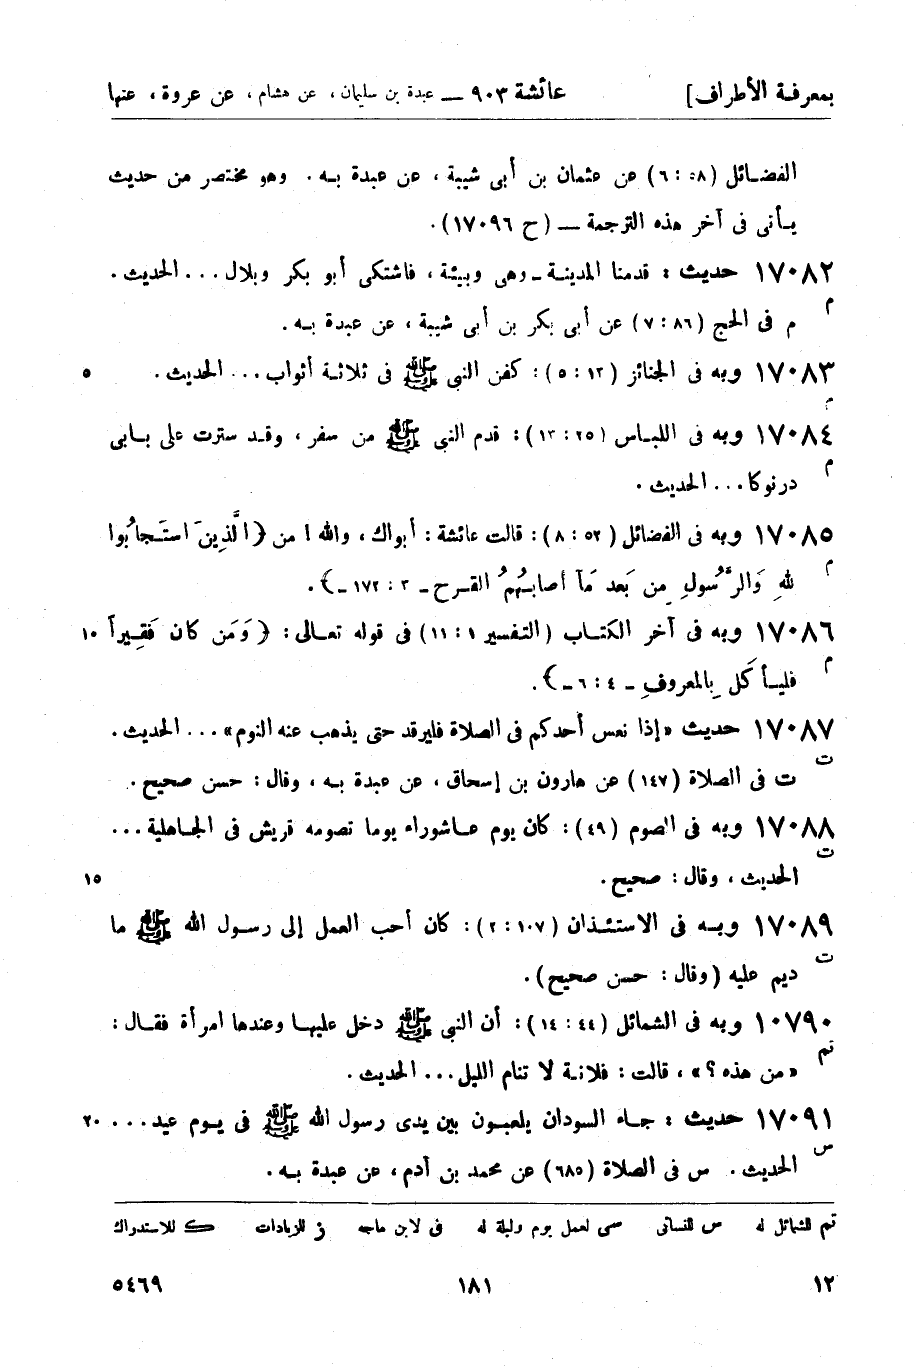 بمعرفة الأطراف] عائشة ٩٠٣ — عبدة بن سليمان، عن هشام، عن عروة، عنها
الفضائل (٨: ٦) عن عثمان بن أبى شيبة، عن عبدة به. وهو مختصر من حديث
يأتى فى آخر هذه الترجمة — (ح ١٧٠٩٦).
١٧٠٨٢ حديث: قدمنا المدينة ـ وهى وبيئة، فاشتكى أبو بكر وبلال... الحديث.
م م فى الحج (٨٦: ٧) عن أبى بكر بن أبى شيبة، عن عبدة به.
١٧٠٨٣ وبه فى الجنائز (١٣: ٥): كفن النبى ﷺ فى ثلاثة أثواب... الحديث. ٥
م
١٧٠٨٤ وبه فى اللباس (٢٥: ١٣): قدم النبى ﷺ من سفر، وقد سترت على بابى
م درنوكا... الحديث.
١٧٠٨٥ وبه فى الفضائل (٥٢: ٨): قالت عائشة: أبواك، والله! من {الَّذِينَ استَجابُوا
م للهِ وَالرَّسُولِ مِن بَعد مَآ أصابَهُمُ القرح ـ ٣: ١٧٢ ـ}.
١٧٠٨٦ وبه فى آخر الكتاب (التفسير ١: ١١) فى قوله تعالى: {وَمَن كان فَقِيراً ١٠
م فليأكَل بِالمعروفِ ـ ٤: ٦ ـ}.
١٧٠٨٧ حديث «إذا نعس أحدكم فى الصلاة فليرقد حتى يذهب عنه النوم»... الحديث.
ت ت فى الصلاة (١٤٧) عن هارون بن إسحاق، عن عبدة به، وقال: حسن صحيح.
١٧٠٨٨ وبه فى الصوم (٤٩): كان يوم عاشوراء يوما تصومه قريش فى الجاهلية...
ت الحديث، وقال: صحيح. ١٥
١٧٠٨٩ وبه فى الاستئذان (١٠٧: ٢): كان أحب العمل إلى رسول الله ﷺ ما
ت ديم عليه (وقال: حسن صحيح).
١٠٧٩٠ وبه فى الشمائل (٤٤: ١٤): أن النبى ﷺ دخل عليها وعندها امرأة فقال:
تم «من هذه؟»، قالت: فلانة لا تنام الليل... الحديث.
١٧٠٩١ حديث: جاء السودان يلعبون بين يدى رسول الله ﷺ فى يوم عيد... ٢٠
س الحديث. س فى الصلاة (٦٨٥) عن محمد بن آدم، عن عبدة به.
تم للشمائل له س للنسائى سى لعمل يوم وليلة له فى لابن ماجه ز للزيادات ك للاستدراك
١٢ ١٨١ ٥٤٦٩